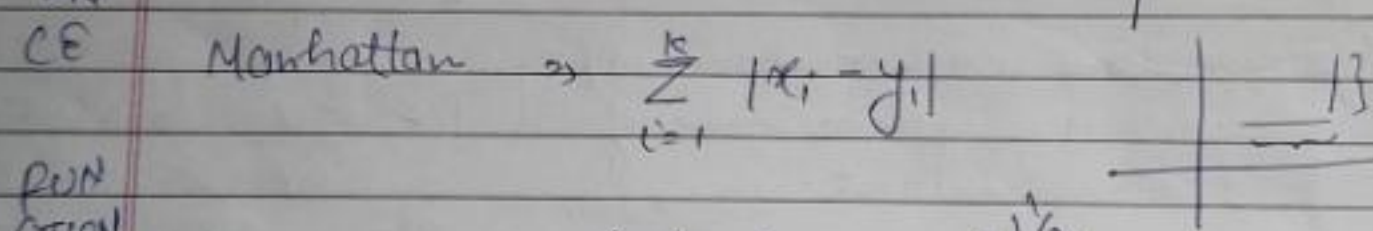 CE Manhattan ⇒ \sum_{i=1}^{k} |x_i - y_i|
RUN